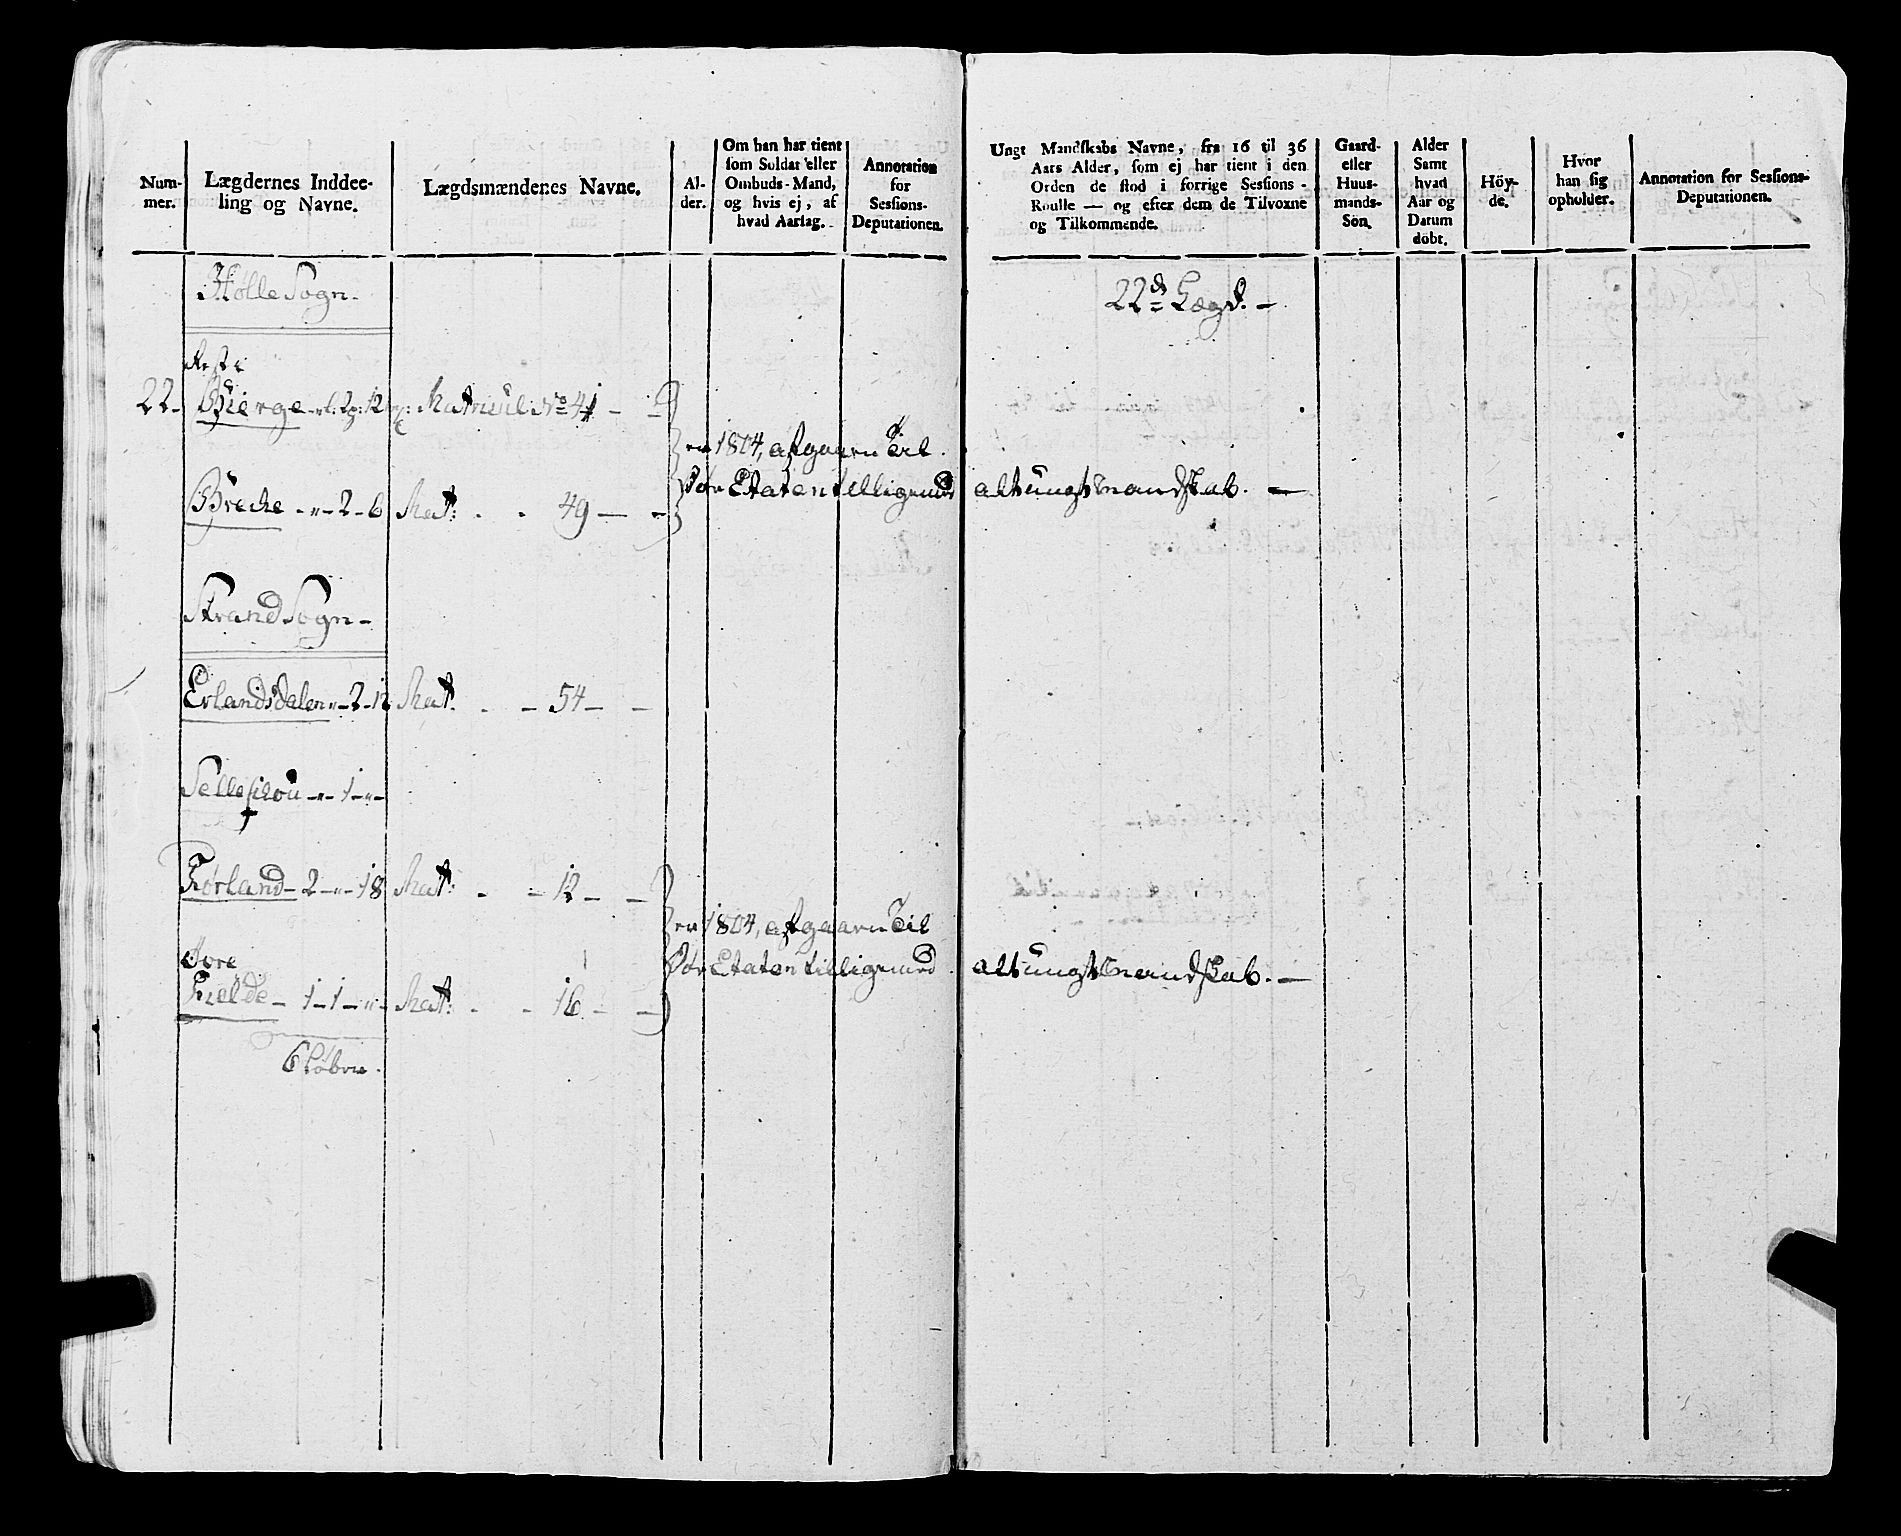 Num-
mer.
Lægdernes Inddee-
ling og Navne.
Lægdsmændenes Navne.
Al-
der.
Om han har tient
som Soldat eller
Ombuds-Mand,
og hvis ej, af
hvad Aarsag.
Annotation
for
Sessions-
Deputationen.
Ungt Mandskabs Navne, fra 16 til 36
Aars Alder, som ej har tient i den
Orden de stod i forrige Sessions-
Roulle — og efter dem de Tilvoxne
og Tilkommende.
Gaard-
eller
Huus-
mands-
Søn.
Alder
Samt
hvad
Aar og
Datum
døbt.
Höy-
de.
Hvor
han sig
opholder.
Annotation for Sessions-
Deputationen.
Hølle Sogn.
22de Lægd. —
22 - Bierge 12 Matricul No 41
er 1804, afgaaen Til
Søe Etaten tilligemed alt ungt Mandskab. —
Breche - „ - 2 - 6 Mat: - - 49 —
Strand Sogn —
Erlandsdalen „ - 2 - 12 Mat. - - 54 —
- „ - 1 - „ -
Førland - 2 - „ - 18 Mat: - - 12 —
er 1804, afgaaen Til
Søe Etaten tilligemed alt ungt Mandskab. —
Øvre
- 1 - 1 - „ - Mat: - - 16 —
6 Løber.